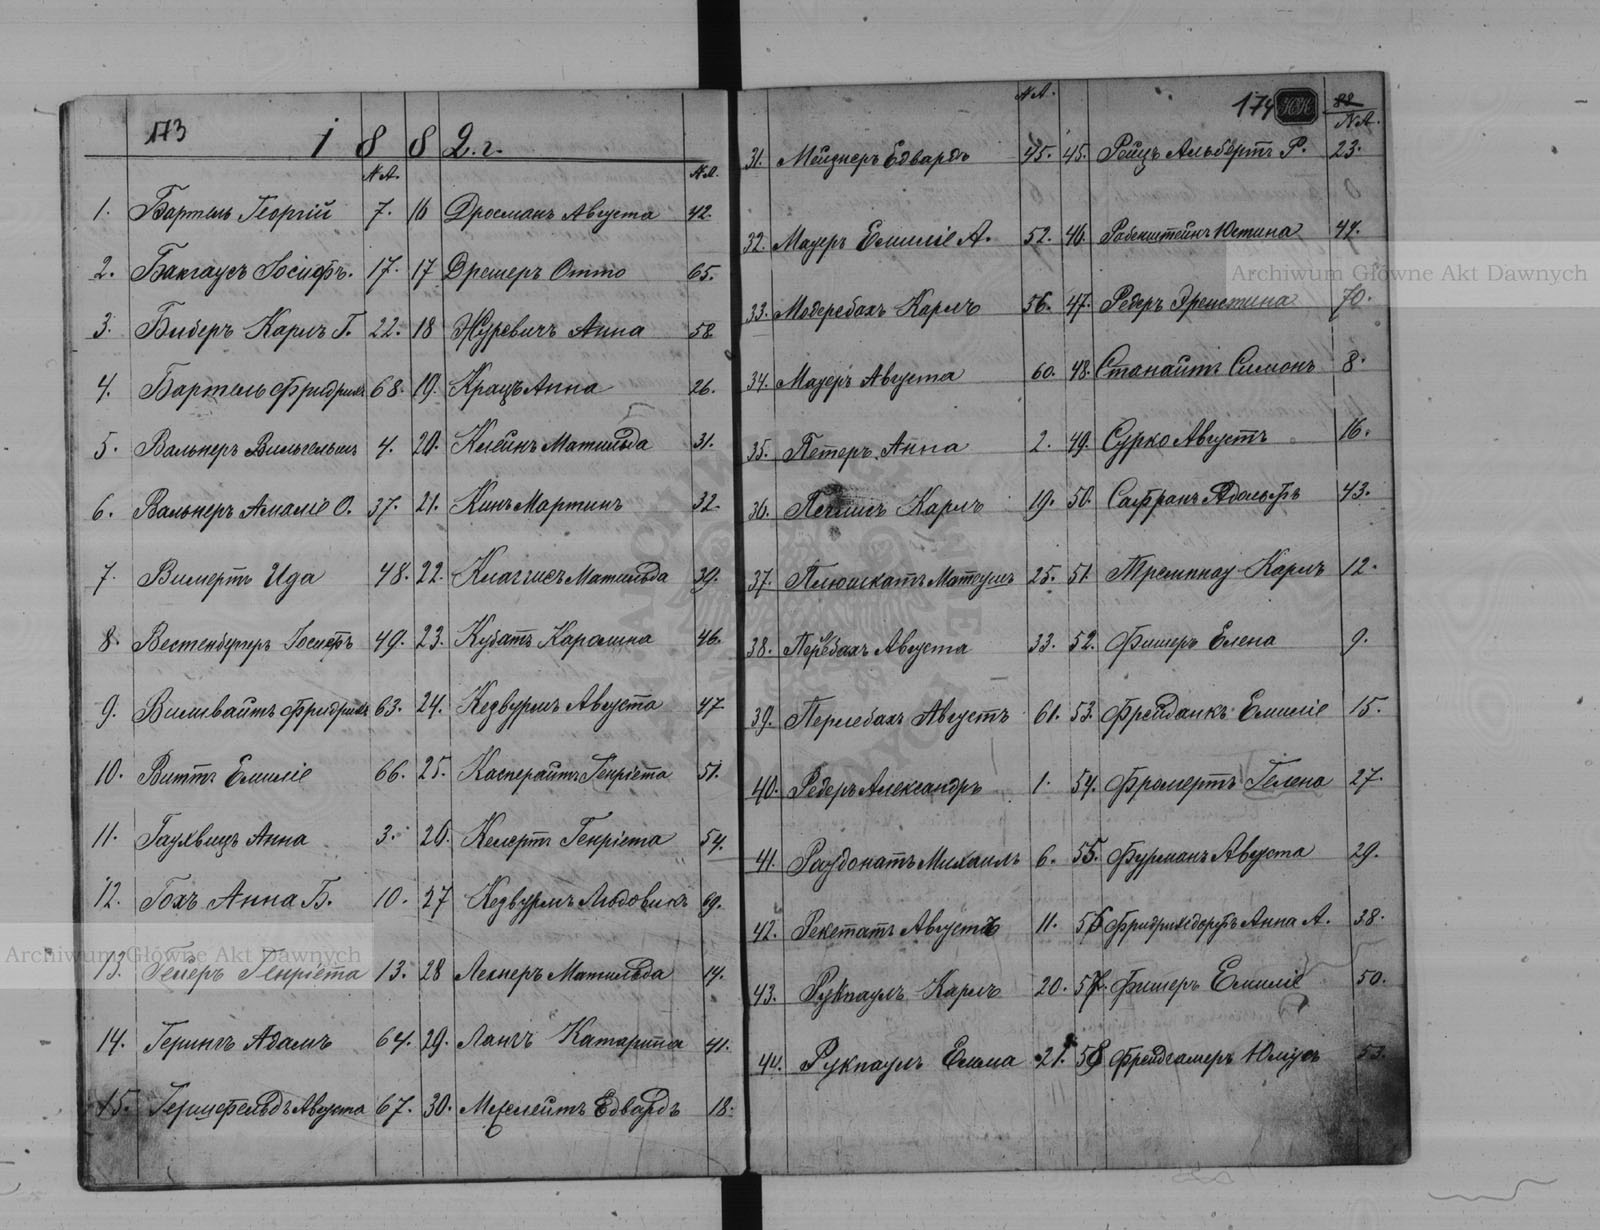 173
1 8 8 2. г.
N A. N A.
1. Бартель Георгій 7. 16 Дросманъ Августа 42.
2. Бакгаусъ Іосифъ. 17. 17 Дрешеръ Отто 65.
3. Биберъ Карлъ Г. 22. 18 Журевичъ Анна 58
4. Бартель Фридрихъ 68. 19. Крацъ Анна 26.
5. Вальнеръ Вильгельмъ 4. 20. Клейнъ Матильда 31.
6. Вальнеръ Амаліе О. 37. 21. Кинъ Мартинъ 32.
7. Вимертъ Ида 48. 22. Клаггисъ Матильда 39.
8. Вестенбергеръ Іосифъ 49. 23. Кубатъ Каролина 46.
9. Виливайтъ Фридрихъ 63. 24. Кедвурмъ Августа 47
10. Виттъ Емиліе 66. 25. Касперайтъ Генріета 51.
11. Гаухвицъ Анна 3. 26. Келертъ Генріета 54.
12. Гохъ Анна Б. 10. 27 Кедвурмъ Людовикъ 69.
13. Гейеръ Генріета 13. 28 Лехнеръ Матильда 14.
14. Герингъ Адамъ 64. 29. Лангъ Катарина 41.
15. Гершфельдъ Августа 67. 30. Мехелейтъ Едвардъ 18.
N A. 174 НН 82
N A.
31. Мейднеръ Едвардъ 45. 45. Рейцъ Альбертъ Р. 23.
32. Мауеръ Емиліе А. 52. 46. Рабенштейнъ Юстина 44.
33. Модеребахъ Карлъ 56. 47. Редеръ Эрнстина 70.
34. Мауеръ Августа 60. 48. Станайтъ Симонъ 8.
35. Петеръ Анна 2. 49. Сурко Августъ 16.
36. Карлъ 19. 50. Сафранъ Адольфъ 43.
37. Плюшкатъ Матеушъ 25. 51. Тремпнау Карлъ 12.
38. Августа 33. 52. Фишеръ Елена 9.
39. Перлебахъ Августъ 61. 53. Фрейданкъ Емиліе 15.
40. Редеръ Александръ 1. 54. Фромертъ Гелена 27.
41. Раудонатъ Михаилъ 6. 55. Фурманъ Августа 29.
42. Рекетатъ Августъ 11. 56 Фридрихсдорфъ Анна А. 38.
43. Рукпаулъ Карлъ 20. 57. Фишеръ Емиліе 50.
44. Рукпаулъ Емма 21. 58 Фрейдгамеръ Юліусъ 53.
Archiwum Główne Akt Dawnych
Archiwum Główne Akt Dawnych